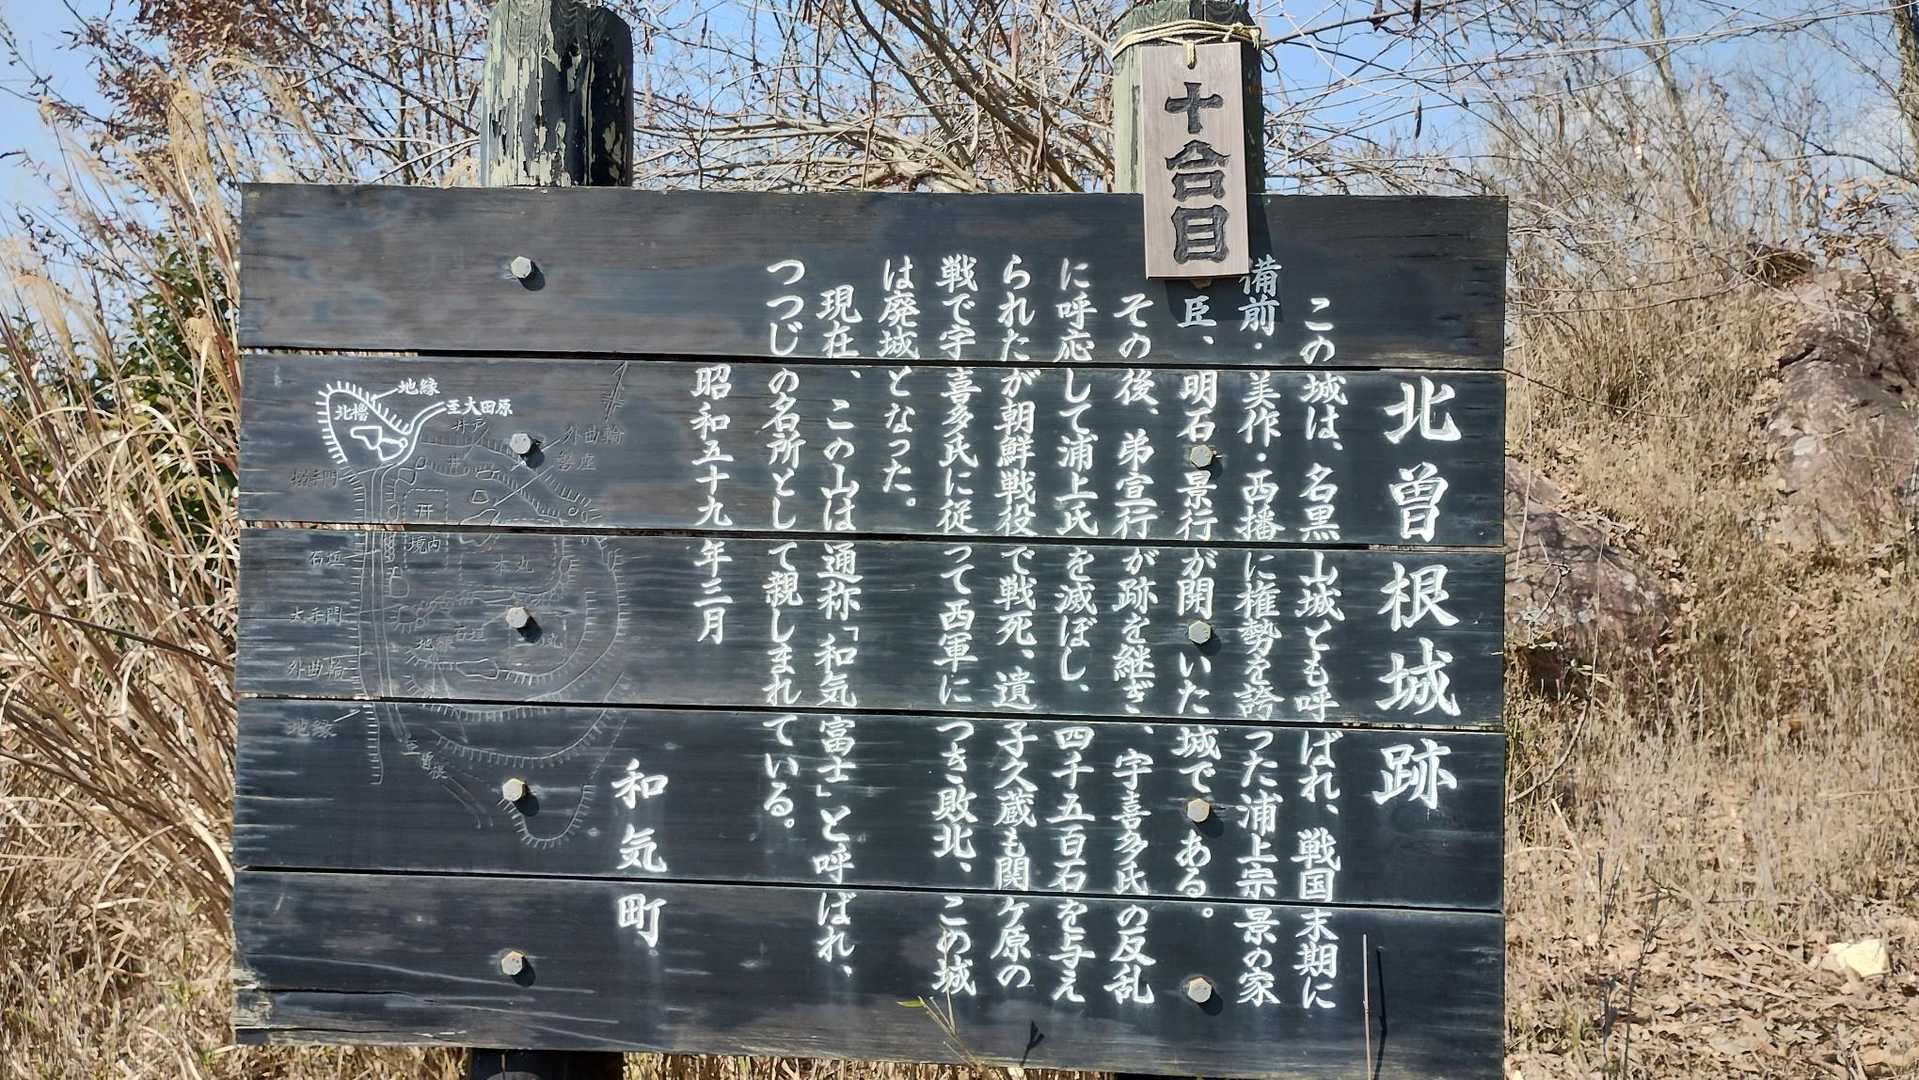 十合目
北曽根城跡
この城は、名黒山城とも呼ばれ、戦国末期に
備前・美作・西播に権勢を誇った浦上宗景の家
臣、明石景行が開いた城である。
その後、弟宣行が跡を継ぎ、宇喜多氏の反乱
に呼応して浦上氏を滅ぼし、四千五百石を与え
られたが朝鮮戦役で戦死、遺子久蔵も関ケ原の
戦で宇喜多氏に従って西軍につき敗北、この城
は廃城となった。
現在、この山は通称「和気富士」と呼ばれ、
つつじの名所として親しまれている。
昭和五十九年三月
和気町
地縁
北櫓
至大田原
井戸
外曲輪
磐座
搦手門
境内
本丸
石垣
大手門
石垣
外曲輪
地縁
至曽根